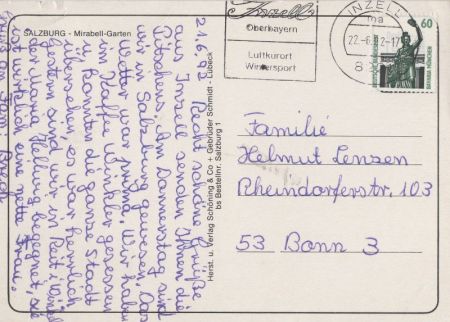 SALZBURG - Mirabell-Garten
21.6.92 Recht schöne Grüße
aus Inzell senden Ihnen die
Pitschers. Am Donnerstag sind
wir in Salzburg gewesen. Das
Wetter war prima. Wir haben
im Kaffee Winkler gesessen
u. konnten die ganze Stadt
übersehen, es war herrlich.
Gestern sind wir in Reit
der Maria Hellwig begegnet sie
ist wirklich eine nette Frau.
Herst. u. Verlag Schöning & Co + Gebrüder Schmidt · Lübeck
bs Bestellnr. Salzburg 1
Inzell
Oberbayern
Luftkurort
Wintersport
INZELL
22.-6.92-17
8
60
BAVARIA MÜNCHEN
Familie
Helmut Lenzen
Rheindorferstr. 103
53 Bonn 3